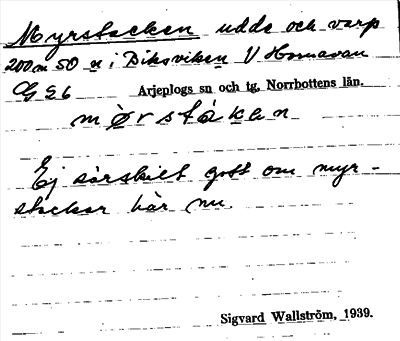 Myrstacken udde och varp
200 m SO n i Biksviken V Hornavan
Arjeplogs sn och tg, Norrbottens län.
mørstaken
Ej särskilt gott om myr-
stackar här nu.
Sigvard Wallström, 1939.